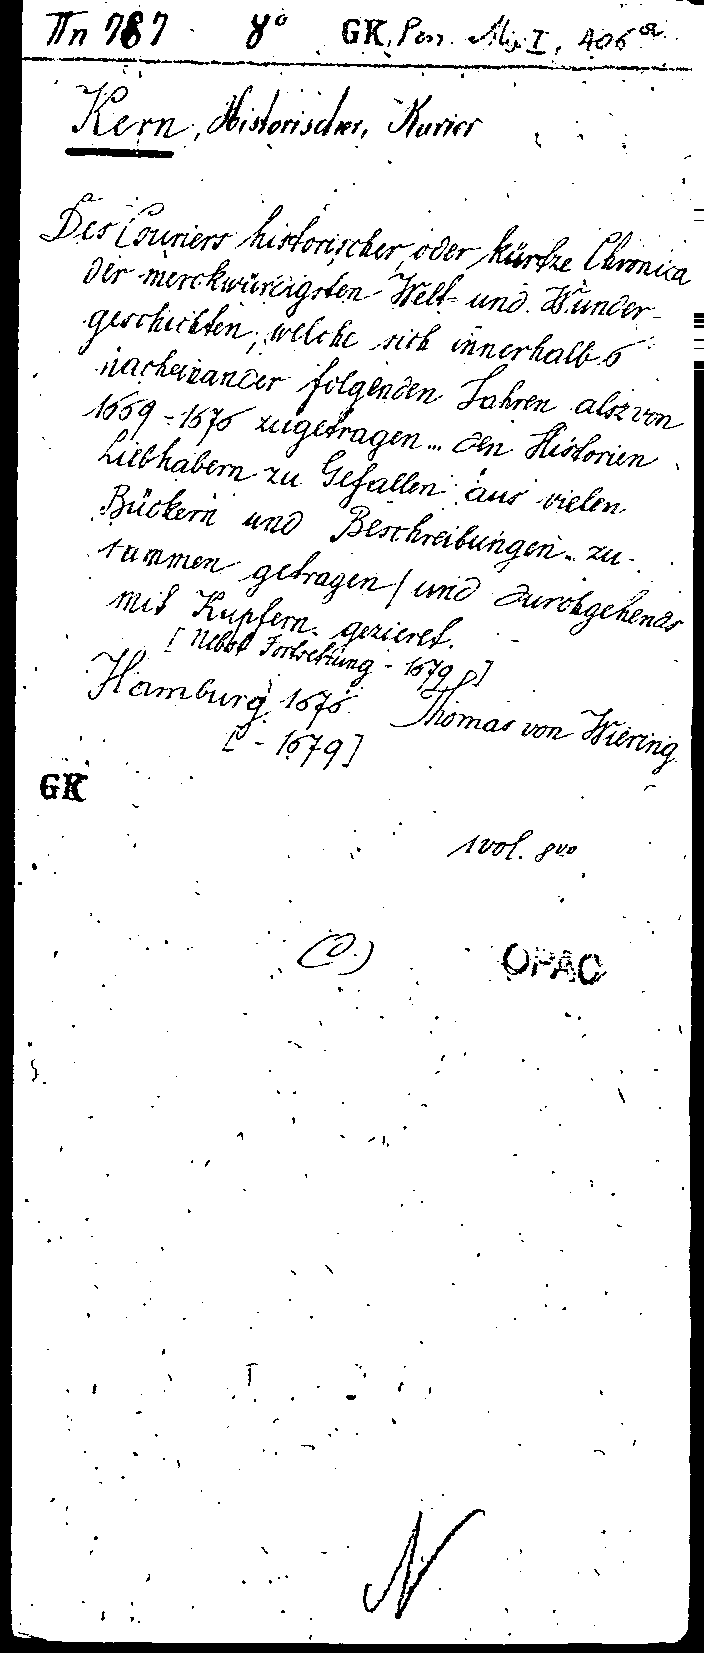 IIn 787 8° GK, Pon. Ms. I, 406 a
Kern, Historischer, Kurier
Des Couriers historischer, oder kürtze Chronica
der merckwürdigsten Welt- und Wunder-
geschichten, welche sich innerhalb 6
nacheinander folgenden Jahren alsz von
1669-1676 zugetragen... den Historien
Liebhabern zu Gefallen aus vielen
Bückern und Beschreibungen.. zu-
sammen getragen / und durchgehends
mit Kupfern gezieret.
[Nebst Fortsetzung - 1679]
Hamburg 1676 Thomas von Wiering
[- 1679]
GK
1 vol. 8vo
(O.)
OPAC
N